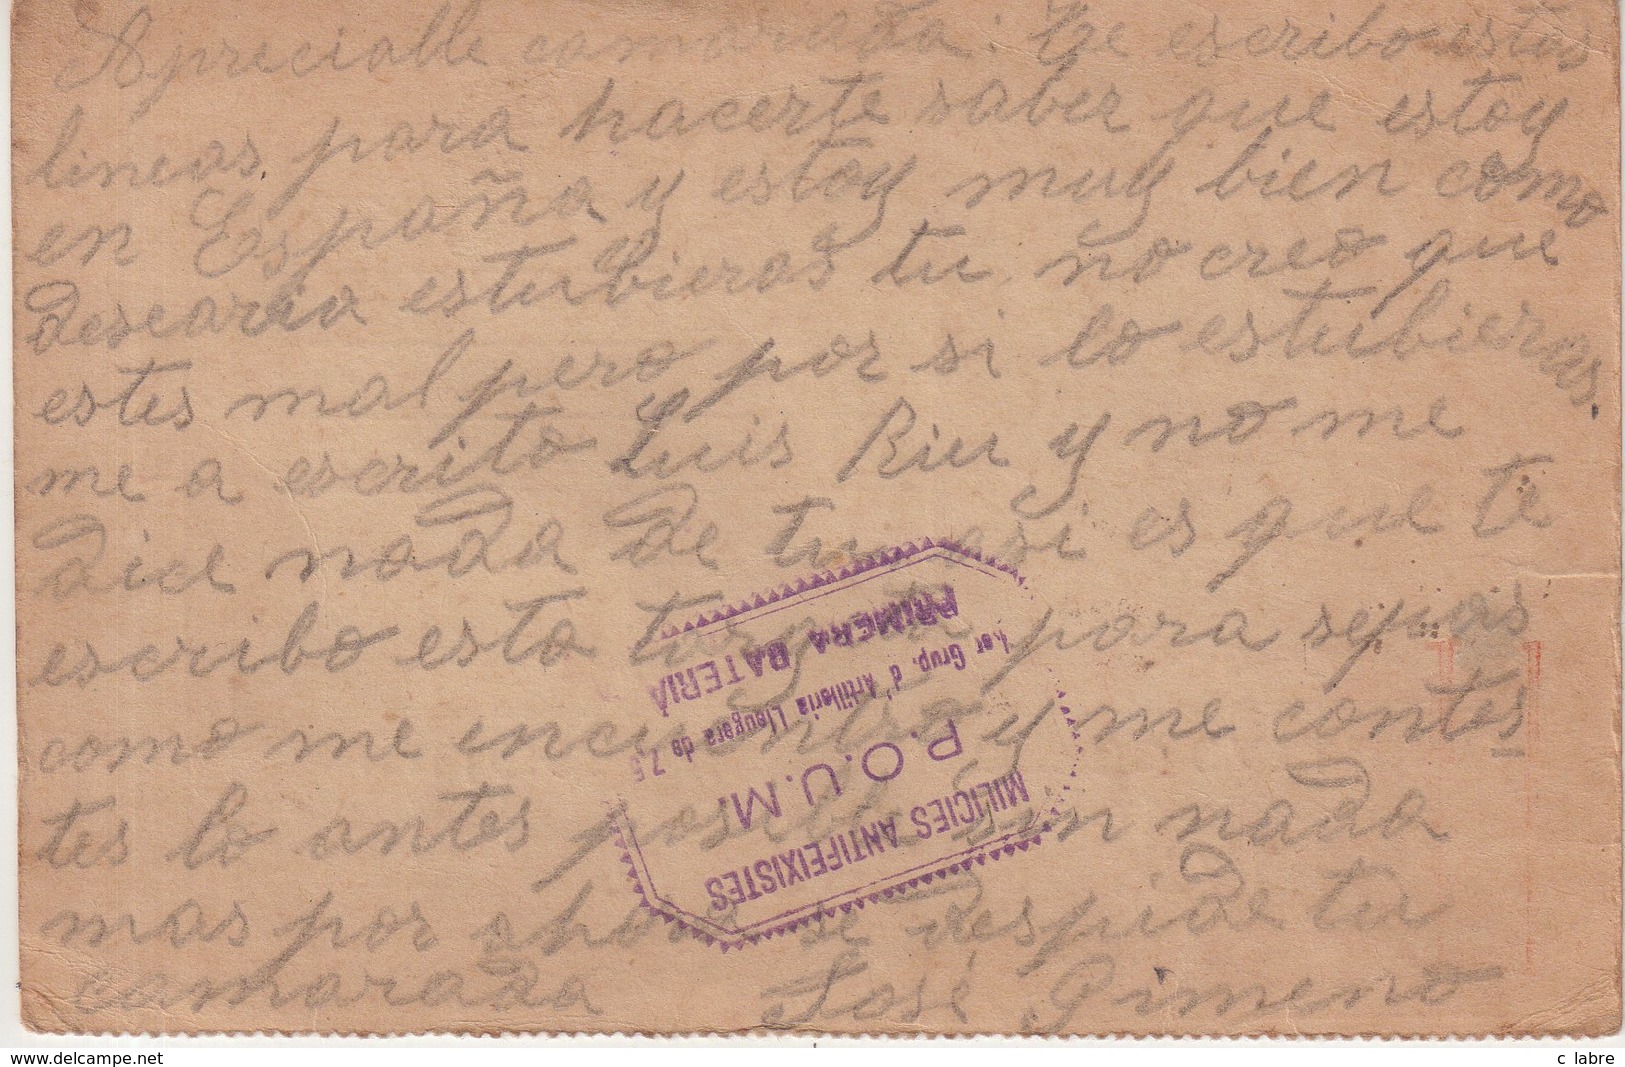 Apreciable camarada: Te escribo estas
lineas para hacerte saber que estoy
en España y estoy muy bien como
desearia estubieras tu no creo que
estes mal pero por si lo estubieras.
me a escrito Luis Riu y no me
dice nada de tu asi es que te
escribo esta targeta para sepas
como me encuentro y me contes
tes lo antes posible sin nada
mas por ahora se despide tu
camarada José Pimeno
MILICIES ANTIFEIXISTES
P.O.U.M.
1.er Grup. d'Artilleria Lleugera de 7,5
PRIMERA BATERIA
www.delcampe.net
c labre